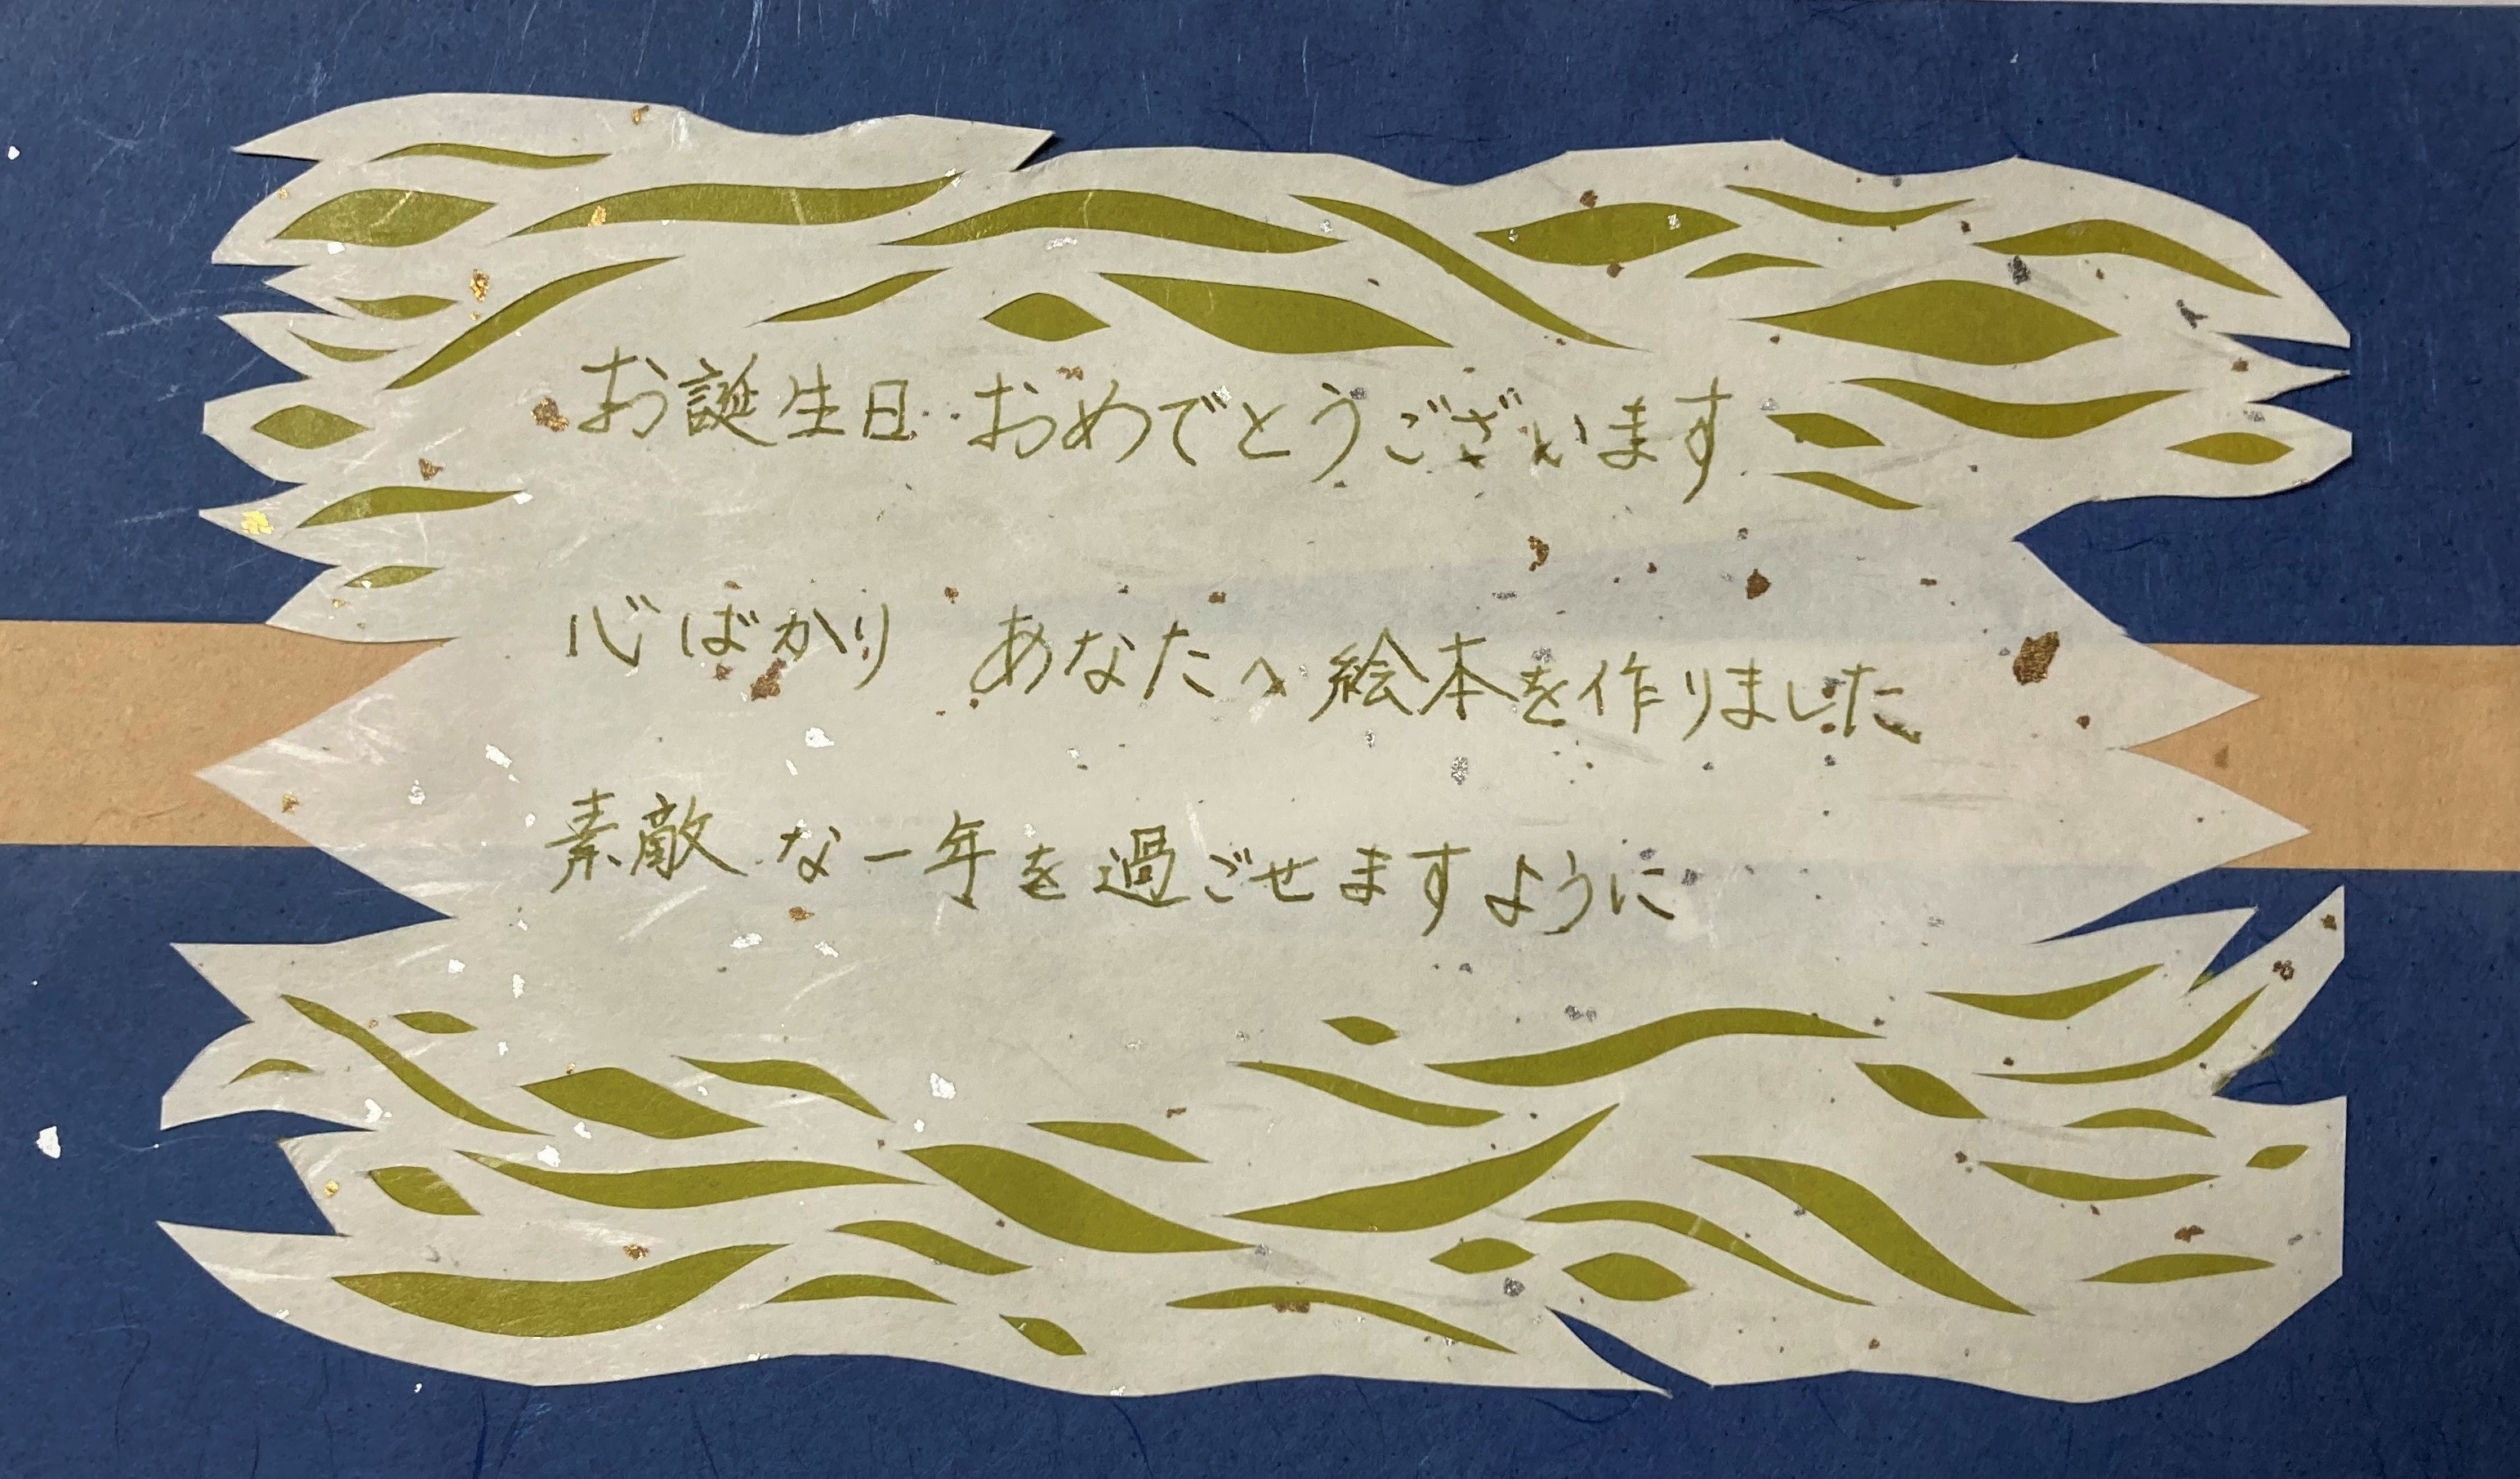 お誕生日 おめでとうございます
心ばかり あなたへ絵本を作りました
素敵な一年を過ごせますように